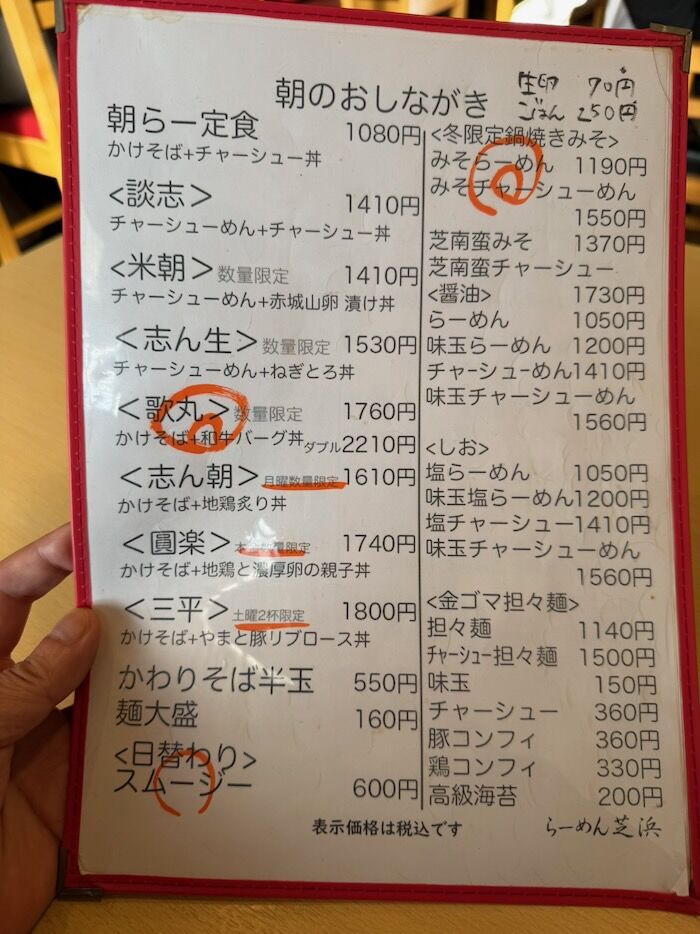 朝のおしながき
生卵 70円
ごはん 250円
朝らー定食 1080円
かけそば+チャーシュー丼
<談志> 1410円
チャーシューめん+チャーシュー丼
<米朝>数量限定 1410円
チャーシューめん+赤城山卵 漬け丼
<志ん生>数量限定 1530円
チャーシューめん+ねぎとろ丼
<歌丸>数量限定 1760円
かけそば+和牛バーグ丼 ダブル2210円
<志ん朝>月曜数量限定 1610円
かけそば+地鶏炙り丼
<圓楽> 数量限定 1740円
かけそば+地鶏と濃厚卵の親子丼
<三平>土曜2杯限定 1800円
かけそば+やまと豚リブロース丼
かわりそば半玉 550円
麺大盛 160円
<日替わり>
スムージー 600円
<冬限定鍋焼きみそ>
みそらーめん 1190円
みそチャーシューめん
1550円
芝南蛮みそ 1370円
芝南蛮チャーシュー
<醤油> 1730円
らーめん 1050円
味玉らーめん 1200円
チャーシューめん1410円
味玉チャーシューめん
1560円
<しお>
塩らーめん 1050円
味玉塩らーめん1200円
塩チャーシュー1410円
味玉チャーシューめん
1560円
<金ゴマ担々麺>
担々麺 1140円
チャーシュー担々麺 1500円
味玉 150円
チャーシュー 360円
豚コンフィ 360円
鶏コンフィ 330円
高級海苔 200円
表示価格は税込です
らーめん芝浜